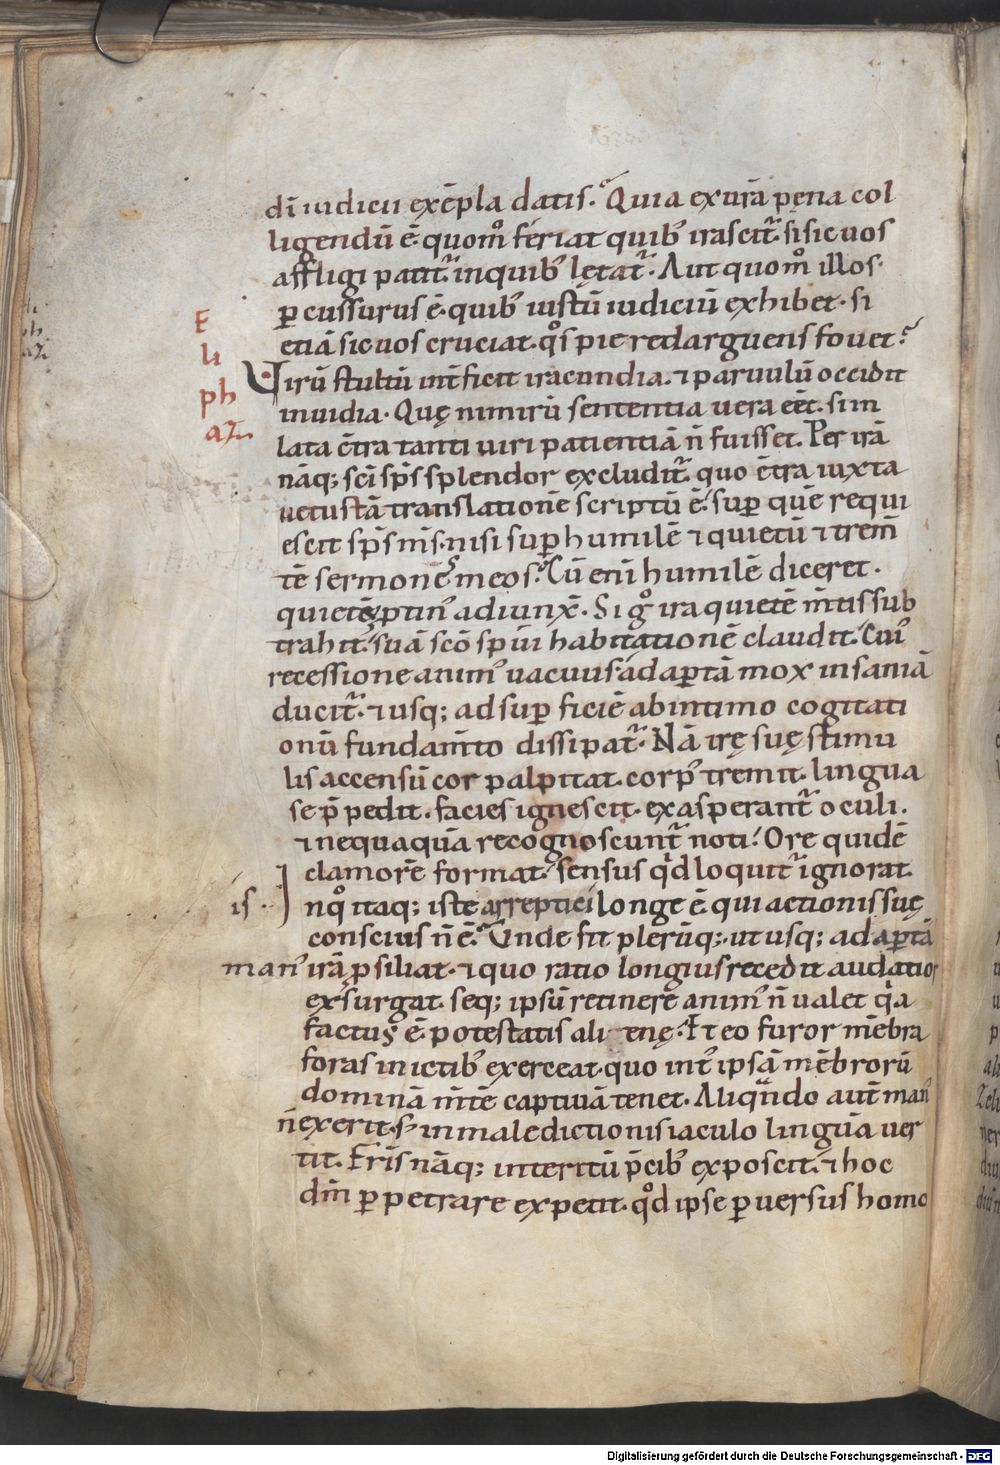 dī iudicii exēpla datis. Quia ex urā pęna col
ligendū ē. quom̊ feriat quibꝰ irascit᷑. si sic uos
affligi patit᷑. in quibꝰ lętat᷑. Aut quom̊ illos
ꝑcussurus ē. quibꝰ iustū iudiciū exhibet. si
etiā sic uos cruciat. q̊s pie redarguens fouet?
E
li
ph
az
Virū stultū int̄ficit iracundia. ⁊ paruulū occidit
inuidia. Quę nimirū sententia uera eēt. si in
lata c̄tra tanti uiri patientiā n̄ fuisset. Per irā
nāq; sc̄i sp̄s splendor excludit᷑. quo c̄tra iuxta
uetustā translationē scriptū ē. suꝑ quē requi
escit sp̄s m̄s. nisi suꝑ humilē ⁊ quietū ⁊ trem̄
tē sermonē meos. Cū eni humilē diceret.
quietē ꝓtinꝰ adiunx̄. Si g̊ ira quietē m̄tis sub
trahit. suā sc̄o sp̄ui habitationē claudit. Cuiꝰ
recessione animꝰ uacuus. ad aꝑtā mox insaniā
ducit᷑. ⁊ usq; ad suꝑficiē ab intimo cogitati
onū fundam̄to dissipat᷑. Nā irę suę stimu
lis accensū cor palpitat. corpꝰ tremit. lingua
se p̄pedit. facies ignescit. exasperant᷑ oculi.
⁊ nequaquā recognoscunt᷑ noti. Ore quidē
clamorē format. sensus qd loquit᷑ ignorat.
is.
In q̊ itaq; iste arrepticii longe ē. qui actionis suę
conscius n̄ ē. Unde fit plerūq;. ut usq; ad aꝑtā
manꝰ irā ꝓsiliat. ⁊ quo ratio longius recedit audatior
exsurgat. seq; ipsū retinere animꝰ n̄ ualet qa
factus ē. potestatis alienę. Et eo furor mēbra
foras in ictibꝰ exerceat. quo intꝰ ipsā mēbrorū
dominā m̄tē captiuā tenet. Aliqndo autē manꝰ
n̄ exerit. s; in maledictionis iaculo linguā uer
tit. Fr̄is nāq; interitū p̄cibꝰ exposcit. ⁊ hoc
dm̄ ꝑpetrare expetit. q̊d ipse ꝑuersus homo
Digitalisierung gefördert durch die Deutsche Forschungsgemeinschaft - DFG